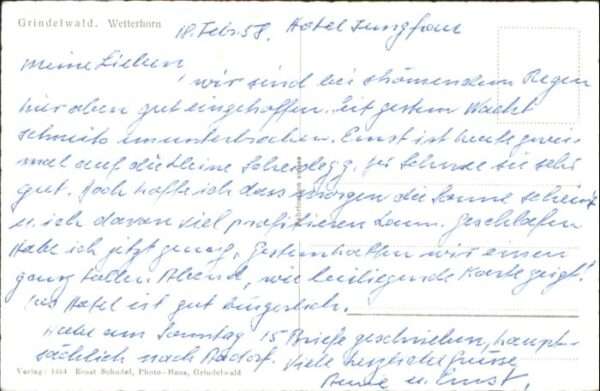 Grindelwald. Wetterhorn
18. Febr. 58. Hotel Jungfrau
Meine Lieben,
wir sind bei strömendem Regen
hier oben gut eingetroffen. Seit gestern Nacht
schneits ununterbrochen. Ernst ist heute zwei
mal auf die kleine Scheidegg. Schnee sei sehr
gut. Hoffe ich dass morgen die Sonne scheint
u. ich davon viel profitieren kann. Geschlafen
habe ich jetzt genug. Gestern hatten wir einen
ganz tollen Abend, wie beiliegende Karte zeigt!
Das Hotel ist gut bürgerlich.
Habe am Sonntag 15 Briefe geschrieben, haupt-
sächlich nach Viele herzliche Grüsse
Verlag: 1464 Ernst Schudel, Photo-Haus, Grindelwald
u. Ernst.